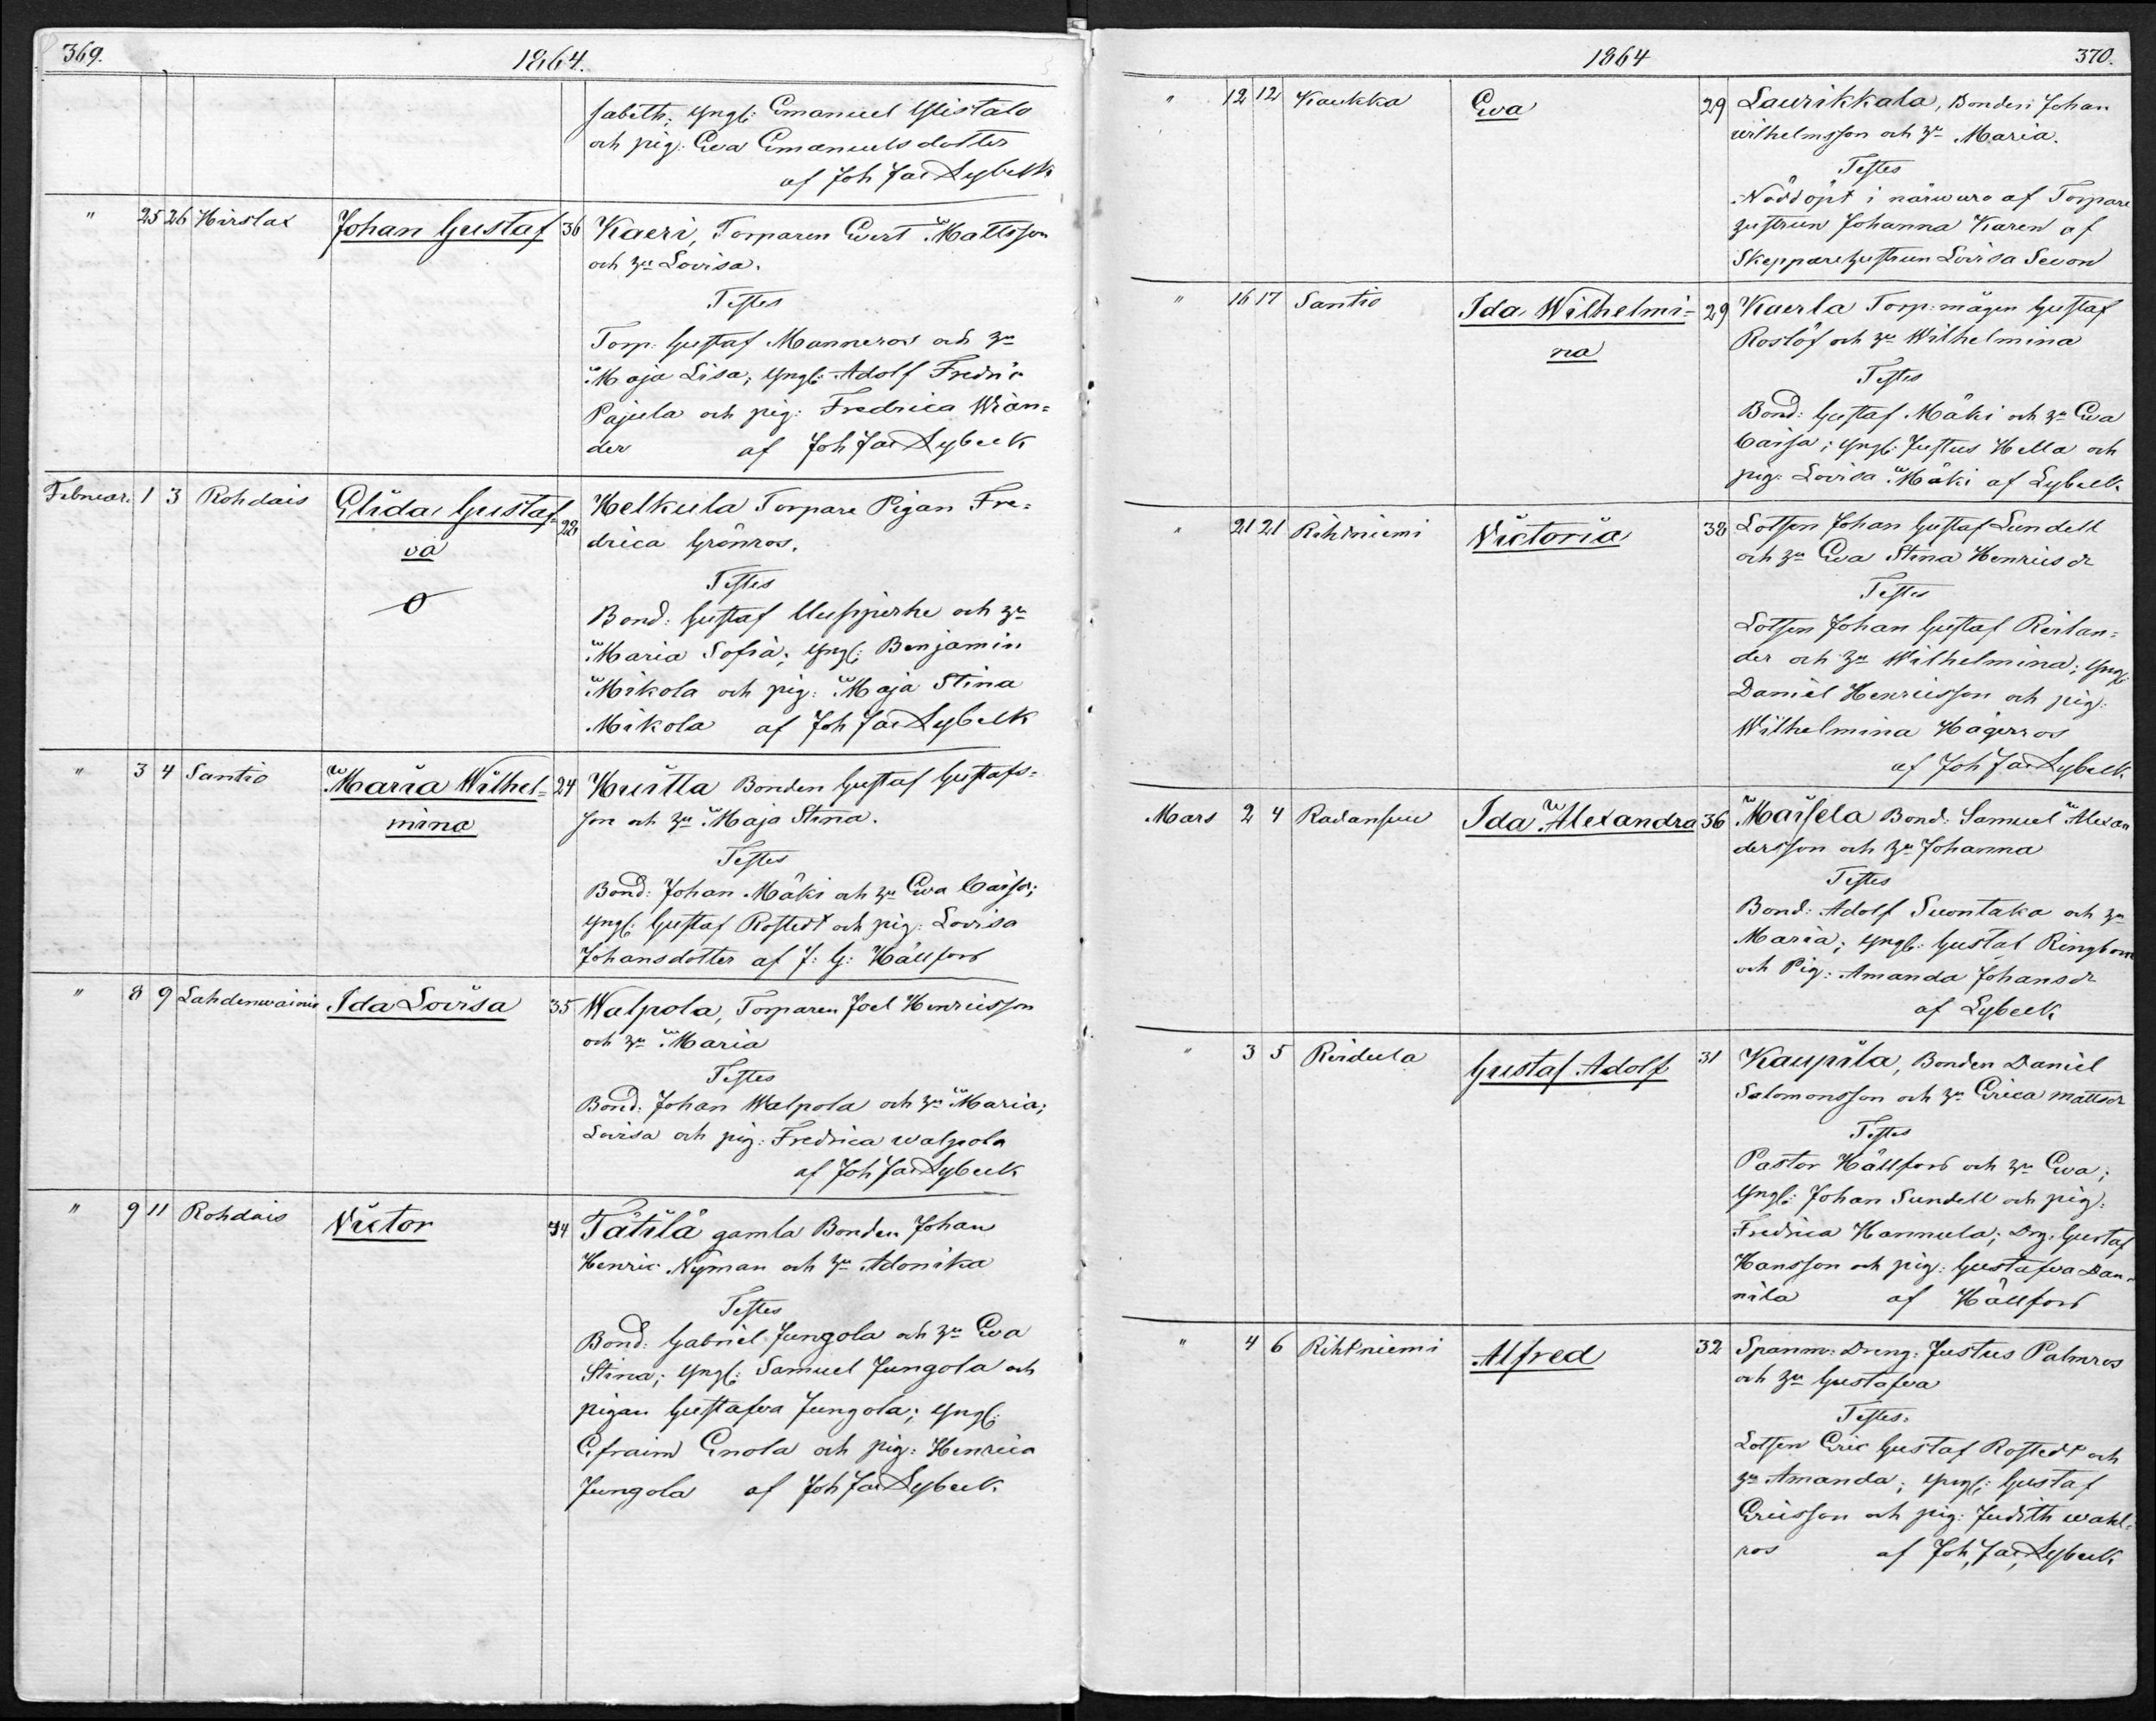 369.
1864.
sabeth; yngl: Emanuel Ylistalo
och pig: Eva Emanuelsdotter
af Joh Jac Lybeck
" 25 26 Hirslax Johan Gustaf 36 Kaeri, Torparen Evert Mattsson
och hu Lovisa.
Testes
Torp: Gustaf Manneros och hu
Maja Lisa; yngl: Adolf Fredric
Pajula och pig: Fredrica Wian=
der af Joh Jac Lybeck
Februari 1 3 Rohdais Elida Gustaf= 22 Helkula Torpare Pigan Fre=
va drica Grönros.
Testes
Bond: Gustaf Uusipirhe och hu
Maria Sofia; yngl: Benjamin
Mikola och pig: Maja Stina
Mikola af Joh Jac Lybeck
" 3 4 Santio Maria Wilhel= 24 Huitla Bonden Gustaf Gustafs=
mina son och hu Maja Stina.
Testes
Bond: Johan Mäki och hu Eva Caisa;
yngl: Gustaf Rostedt och pig: Lovisa
Johansdotter af J: G: Hällfors
" 8 9 Lahdenwainio Ida Lovisa 35 Walpola, Torparen Joel Henricsson
och hu Maria
Testes
Bond: Johan Walpola och hu Maria;
Lovisa och pig: Fredrica walpola
af Joh Jac Lybeck
" 9 11 Rohdais Victor 44 Tätilä gamla Bonden Johan
Henric Nyman och hu Adonika
Testes
Bond: Gabriel Jungola och hu Eva
Stina; yngl: Samuel Jungola och
pigan Gustafva Jungola; yngl:
Efraim Enola och pig: Henrica
Jungola af Joh Jac Lybeck.
1864
370.
" 12 12 Kaukka Eva 29 Laurikkala, Bonden Johan
wilhelmsson och hu Maria.
Testes
Nöddöpt i närwaro af Torpare
hustrun Johanna Karen af
Skepparehustrun Lovisa Sevon
" 16 17 Santio Ida Wilhelmi- 29 Kaerla Torp: mågen Gustaf
na Roslöf och hu Wilhelmina
Testes
Bond: Gustaf Mäki och hu Eva
Caisa; yngl: Justus Hella och
pig: Lovisa Mäki af Lybeck.
" 21 21 Rihtniemi Victoria 32 Lotsen Johan Gustaf Sundell
och hu Eva Stina Henricsdr
Testes
Lotsen Johan Gustaf Reilan=
der och hu Wilhelmina; yngl:
Daniel Henricsson och pig:
Wilhelmina Hägerros
af Joh Jac Lybeck.
Mars 2 4 Radansuu Ida Alexandra 36 Maisela Bond: Samuel Alexan
dersson och hu Johanna
Testes
Bond: Adolf Suontaka och hu
Maria; yngl: Gustaf Ringbom
och Pig: Amanda Johansdr
af Lybeck
" 3 5 Reidula Gustaf Adolf 31 Kaupila, Bonden Daniel
Salomonsson och hu Erica Mattsdr
Testes
Pastor Hällfors och hu Eva;
Yngl: Johan Sundell och pig:
Fredrica Hannula; Drg. Gustaf
Hansson och pig: Gustafva Dan=
nila af Hällfors
" 4 6 Rihtniemi Alfred 32 Spanm: Dreng: Justus Palmros
och hu Gustafva
Testes.
Lotsen Eric Gustaf Rostedt och
hu Amanda; yngl: Gustaf
Ericsson och pig: Judith wahl=
ros af Joh, Jac, Lybeck